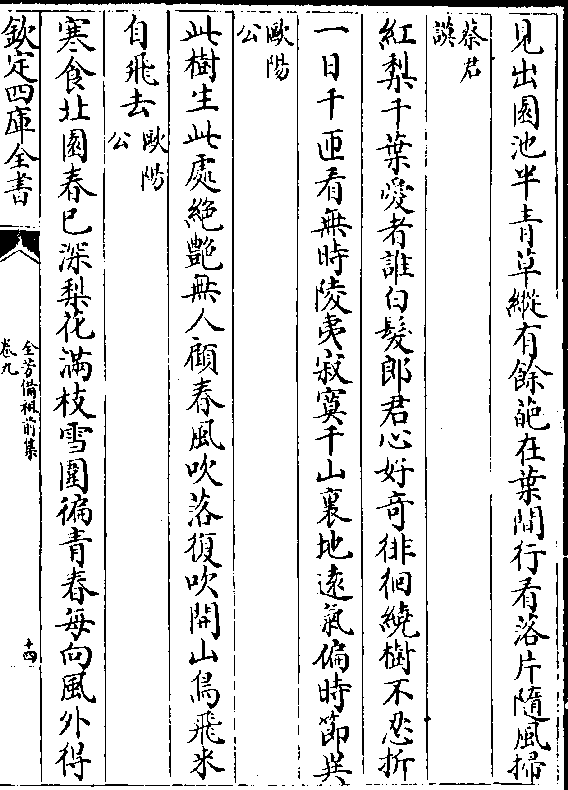 見出園池半青草縱有餘葩在葉間行看落片隨風掃
蔡君
謨
紅梨千葉愛者誰白髮郎君心好奇徘徊繞樹不忍折
一日千匝看無時陵夷寂寞千山裏地遠氣偏時節異
歐陽
公
此樹生此處絶艶無人顧春風吹落復吹開山鳥飛来
自飛去
歐陽
公
寒食北園春已深梨花滿枝雪圍徧青春每向風外得
欽定四庫全書
全芳備祖前集
卷九
十四